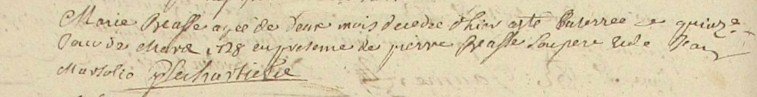 Marie Beasse agee de deux mois decedee d'hier a ete Enterree ce quinze
Jour de Mars 1728 en presence de pierre Beasse Son pere et de Jan
Martolio